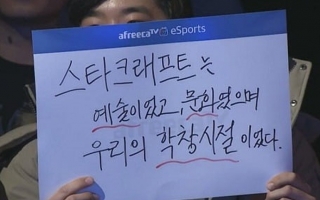 afreecaTV eSports
스타크래프트는
예술이었고, 문화였으며
우리의 학창시절이었다.